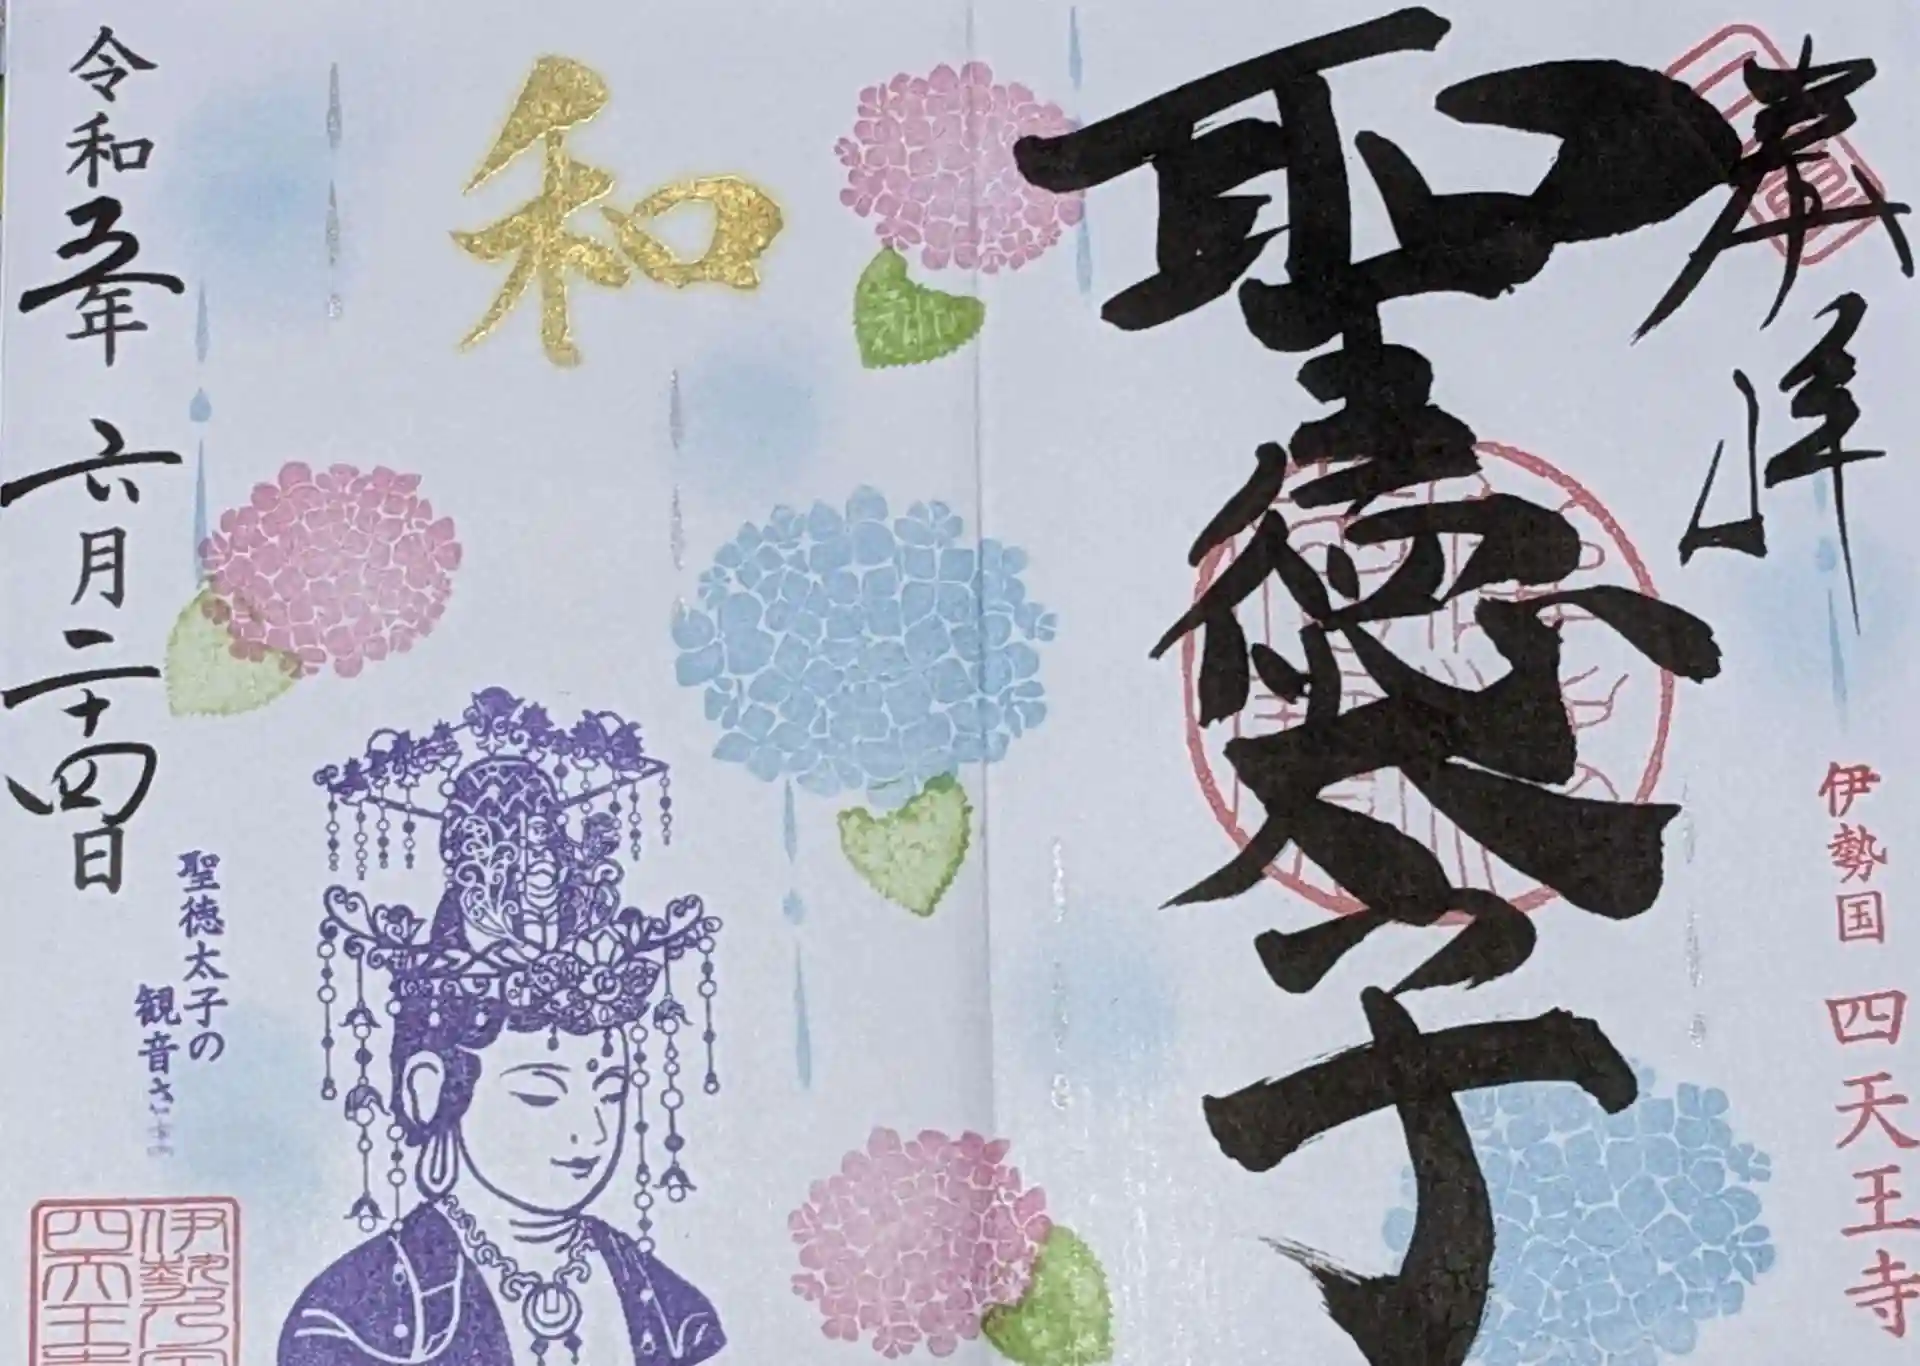 奉拝
聖徳太子
伊勢国 四天王寺
和
令和五年 六月二十四日
聖徳太子の
観音さま